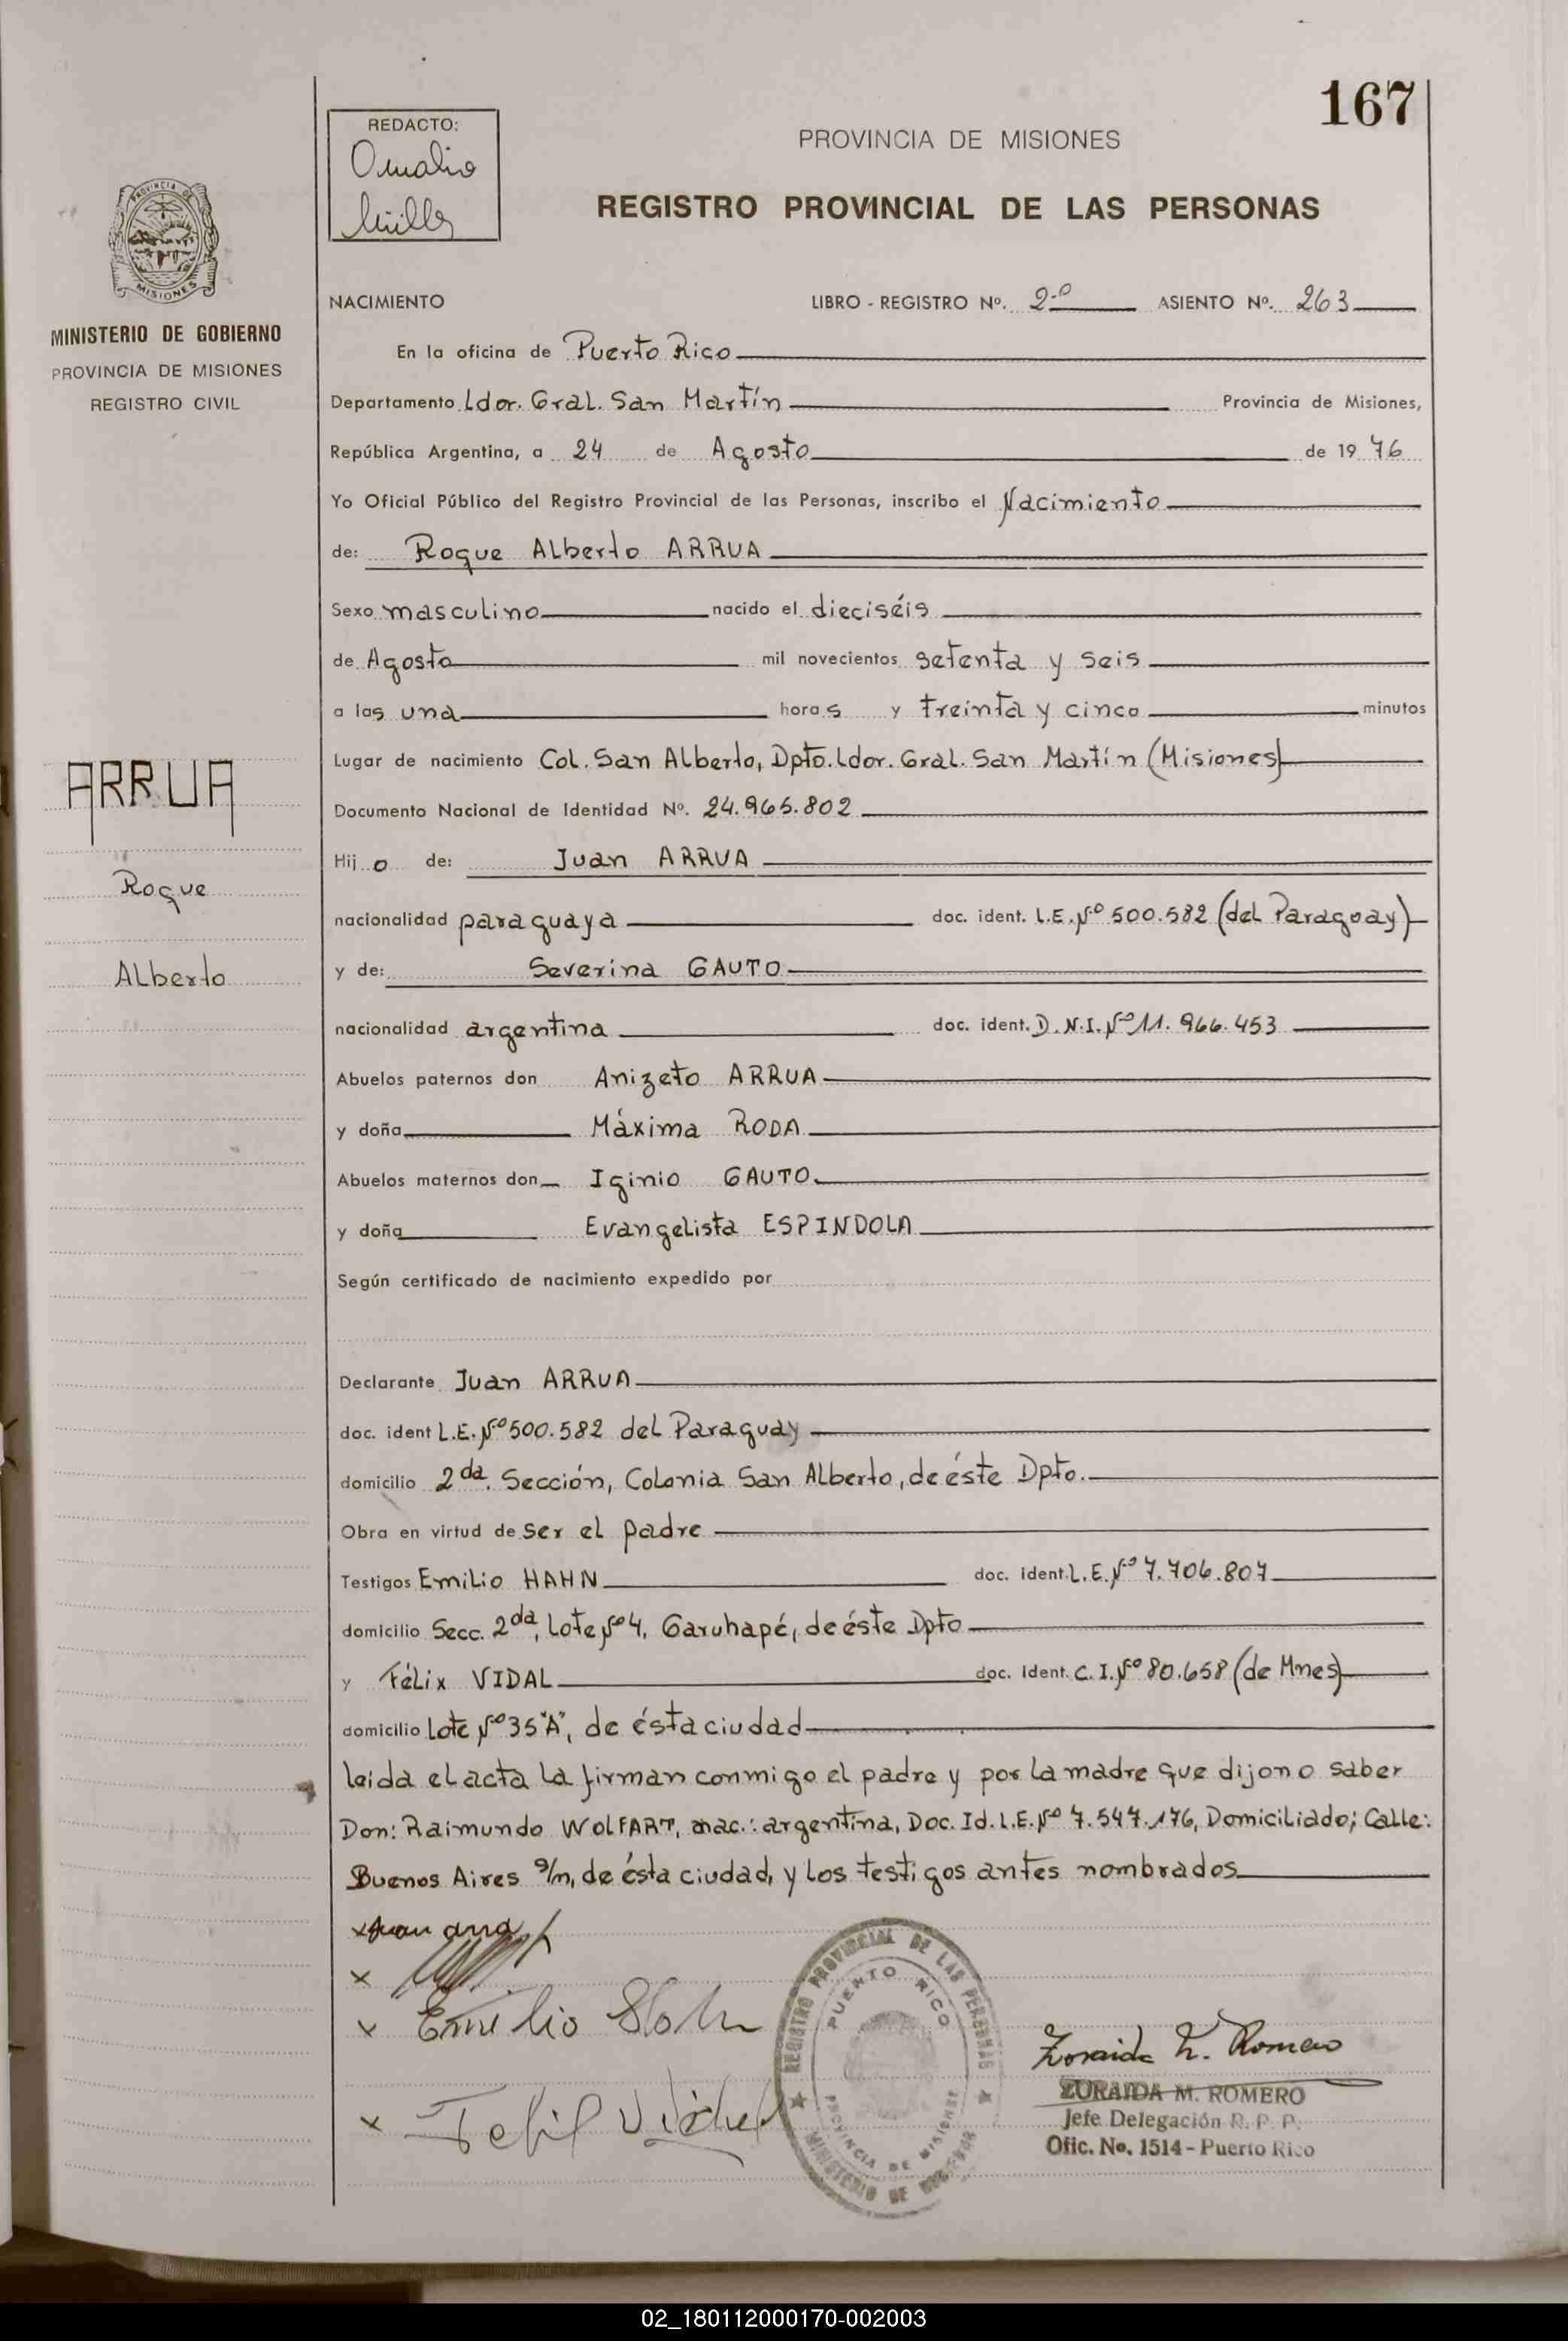 167
REDACTO:
PROVINCIA DE MISIONES
REGISTRO PROVINCIAL DE LAS PERSONAS
PROVINCIA DE
MISIONES
MINISTERIO DE GOBIERNO
PROVINCIA DE MISIONES
REGISTRO CIVIL
NACIMIENTO LIBRO - REGISTRO Nº. 2º ASIENTO Nº. 263
En la oficina de Puerto Rico
Departamento Ldor. Gral. San Martín Provincia de Misiones,
República Argentina, a 24 de Agosto de 1976
Yo Oficial Público del Registro Provincial de las Personas, inscribo el Nacimiento
de: Roque Alberto ARRUA
Sexo masculino nacido el dieciséis
de Agosto mil novecientos setenta y seis
a las una horas y treinta y cinco minutos
Lugar de nacimiento Col. San Alberto, Dpto. Ldor. Gral. San Martín (Misiones)
Documento Nacional de Identidad Nº. 24.965.802
Hijo de: Juan ARRUA
nacionalidad paraguaya doc. ident. L.E. Nº 500.582 (del Paraguay)
y de: Severina GAUTO
nacionalidad argentina doc. ident. D.N.I. Nº 11.966.453
Abuelos paternos don Anizeto ARRUA
y doña Máxima RODA
Abuelos maternos don Iginio GAUTO
y doña Evangelista ESPINDOLA
Según certificado de nacimiento expedido por
Declarante Juan ARRUA
doc. ident L.E. Nº 500.582 del Paraguay
domicilio 2da. Sección, Colonia San Alberto, de éste Dpto.
Obra en virtud de ser el padre
Testigos Emilio HAHN doc. ident. L.E. Nº 7.706.807
domicilio Secc. 2da, Lote Nº 4, Garuhapé, de éste Dpto
y Félix VIDAL doc. Ident. C.I. Nº 80.658 (de Mnes)
domicilio Lote Nº 35 "A", de ésta ciudad
leida el acta la firman conmigo el padre y por la madre que dijo no saber
Don: Raimundo WOLFART, nac.: argentina, Doc. Id. L.E. Nº 7.547.176, Domiciliado; Calle:
Buenos Aires s/n, de ésta ciudad, y los testigos antes nombrados
ARRUA
Roque
Alberto
x Juan arrua
x
x Emilio Hahn
x Felix Vidal
REGISTRO PROVINCIAL DE LAS PERSONAS
MINISTERIO DE GOBIERNO
PUERTO RICO
PROVINCIA DE MISIONES
Zoraida M. Romero
ZORAIDA M. ROMERO
Jefe Delegación R. P. P.
Ofic. No. 1514 - Puerto Rico
02_180112000170-002003